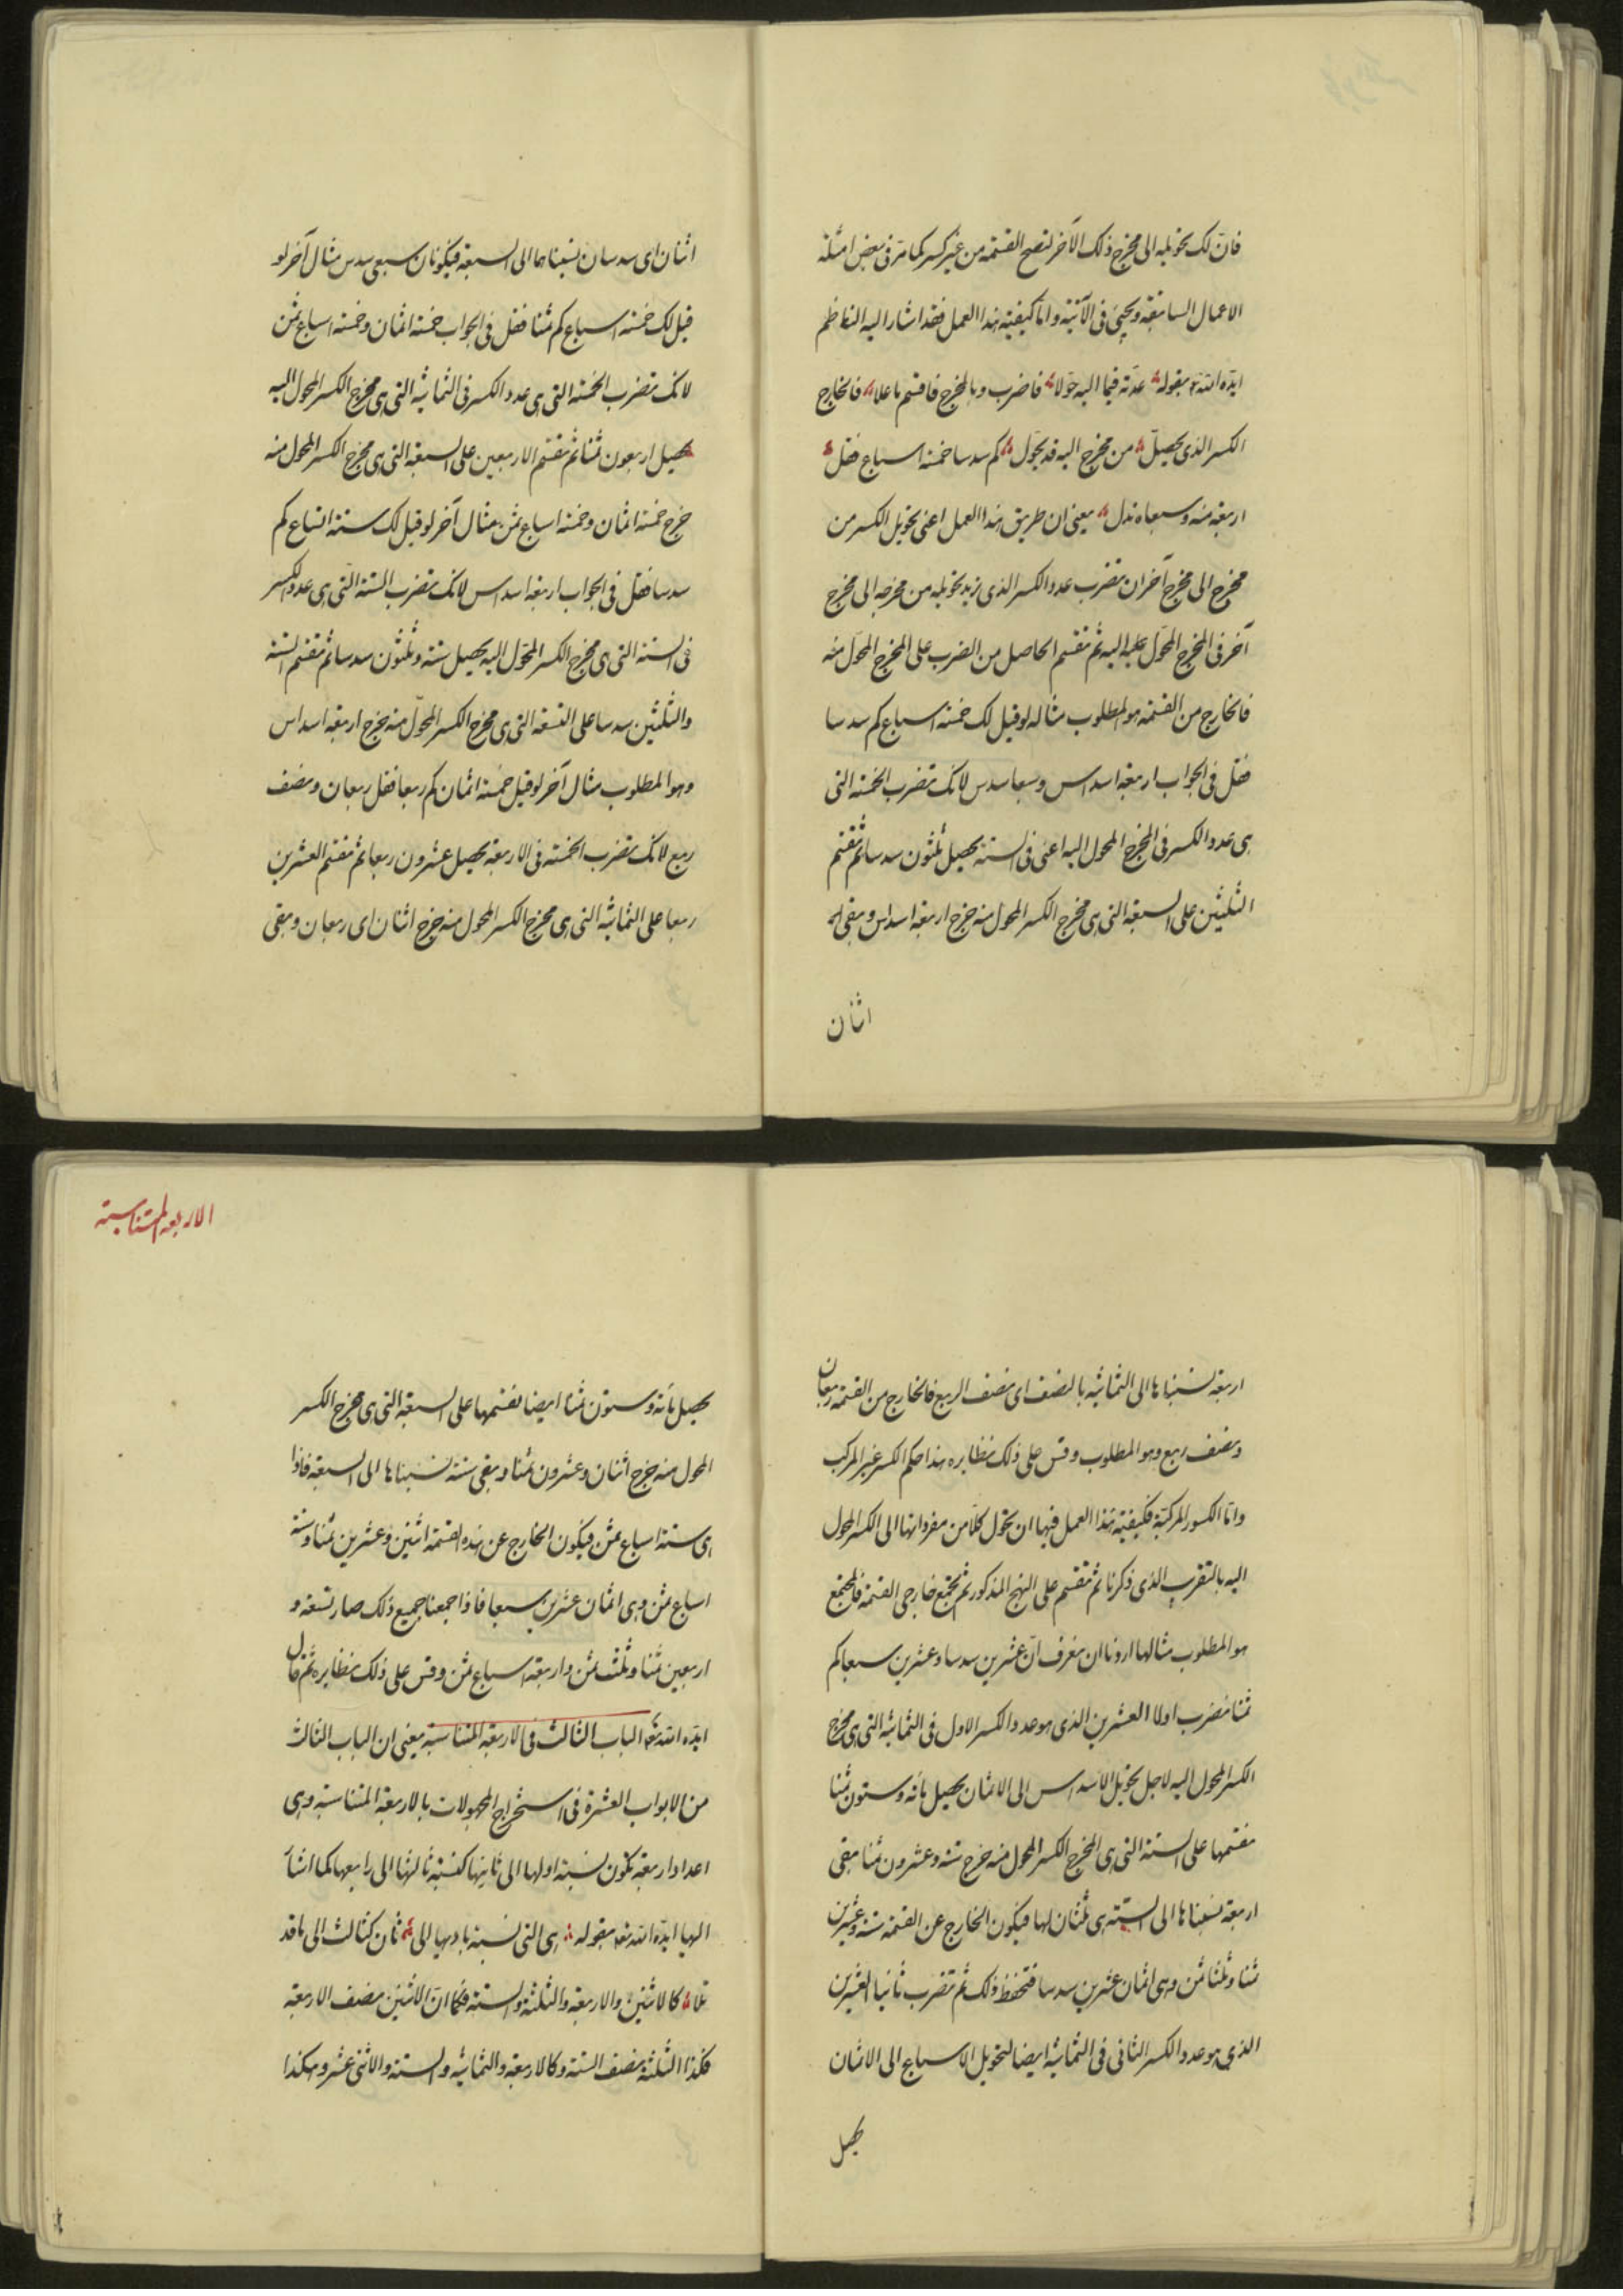 فان لك تحويله الى مخرج ذلك الآخر لتصح القسمة من غير كسر كما مر فى بعض امثلة
الاعمال السابقة ويجيئ فى الآتية واما كيفية هذا العمل فقد اشار اليه الناظم
ايده الله تع بقوله عدته فيما اليه حولا فاضرب وبالمخرج فاقسم ما علا فالخارج
الكسر الذى يحصل من مخرج اليه قد يحول كم سدسا خمسة اسباع فقل
اربعة منه وسبعاه تدل يعنى ان طريق هذا العمل اعنى تحويل الكسر من
مخرج الى مخرج آخر ان تضرب عدد الكسر الذى نريد تحويله من مخرجه الى مخرج
آخر فى المخرج المحول عليه اليه ثم تقسم الحاصل من الضرب على المخرج المحول منه
فالخارج من القسمة هو المطلوب مثاله لو قيل لك خمسة اسباع كم سدسا
فقل فى الجواب اربعة اسداس وسبعا سدس لانك تضرب الخمسة التى
هى عدد الكسر فى المخرج المحول اليه اعنى فى الستة يحصل ثلثون سدسا ثم تقسم
الثلثين على السبعة التى هى مخرج الكسر المحول منه خرج اربعة اسداس وبقى
اثنان
اثنان اى سدسان نسبناهما الى السبعة فيكونان سبعى سدس مثال آخر لو
قيل لك خمسة اسباع كم ثمنا فقل فى الجواب خمسة اثمان وخمسة اسباع ثمن
لانك تضرب الخمسة التى هى عدد الكسر فى الثمانية التى هى مخرج الكسر المحول اليه
يحصل اربعون ثمنا ثم تقسم الاربعين على السبعة التى هى مخرج الكسر المحول منه
خرج خمسة اثمان وخمسة اسباع ثمن مثال آخر لو قيل لك ستة اتساع كم
سدسا فقل فى الجواب اربعة اسداس لانك تضرب الستة التى هى عدد الكسر
فى الستة التى هى مخرج الكسر المحول اليه يحصل ستة وثلثون سدسا ثم تقسم الستة
والثلثين سدسا على التسعة التى هى مخرج الكسر المحول منه خرج اربعة اسداس
وهو المطلوب مثال آخر لو قيل خمسة اثمان كم ربعا فقل ربعان ونصف
ربع لانك تضرب الخمسة فى الاربعة يحصل عشرون ربعا ثم تقسم العشرين
ربعا على الثمانية التى هى مخرج الكسر المحول منه خرج اثنان اى ربعان وبقى
اربعة نسبناها الى الثمانية بالنصف اى نصف الربع فالخارج من القسمة ربعان
ونصف ربع وهو المطلوب وقس على ذلك نظايره هذا حكم الكسر غير المركب
واما الكسور المركبة فكيفية هذا العمل فيها ان تحول كلا من مفرداتها الى الكسر المحول
اليه بالتقريب الذى ذكرنا ثم تقسم على النهج المذكور ثم تجتمع خارجى القسمة فالمجتمع
هو المطلوب مثالها اردنا ان نعرف ان عشرين سدسا وعشرين سبعا كم
ثمنا نضرب اولا العشرين الذى هو عدد الكسر الاول فى الثمانية التى هى مخرج
الكسر المحول اليه لاجل تحويل الاسداس الى الاثمان يحصل مائة وستون ثمنا
نقسمها على الستة التى هى المخرج الكسر المحول منه خرج ستة وعشرون ثمنا بقى
اربعة نسبناها الى الستة هى ثلثان لها فيكون الخارج عن القسمة ستة وعشرين
ثمنا وثلثا ثمن وهى اثمان عشرين سدسا فتحفظ ذلك ثم تضرب ثانيا العشرين
الذى هو عدد الكسر الثانى فى الثمانية ايضا لتحويل الاسباع الى الاثمان
يحصل
الاربعة المتناسبة
يحصل مائة وستون ثمنا ايضا نقسمها على السبعة التى هى مخرج الكسر
المحول منه خرج اثنان وعشرون ثمنا وبقى ستة نسبناها الى السبعة فاذا
هى ستة اسباع ثمن فيكون الخارج عن هذه القسمة اثنين وعشرين ثمنا وستة
اسباع ثمن وهى اثمان عشرين سبعا فاذا جمعنا جميع ذلك صار تسعة و
اربعين ثمنا وثلث ثمن واربعة اسباع ثمن وقس على ذلك نظايره ثم قال
ايده الله تع الباب الثالث فى الاربعة المتناسبة يعنى ان الباب الثالث
من الابواب العشرة فى استخراج المجهولات بالاربعة المتناسبة وهى
اعداد اربعة تكون نسبة اولها الى ثانيها كنسبة ثالثها الى رابعها كما اشار
اليها ايده الله تع بقوله هى التى نسبة باديها الى ثان كثالث الى ما قد
تلا كالاثنين والاربعة والثلثة والستة فكما ان الاثنين نصف الاربعة
فكذا الثلثة نصف الستة وكالاربعة والثمانية والستة والاثنى عشر وهكذا